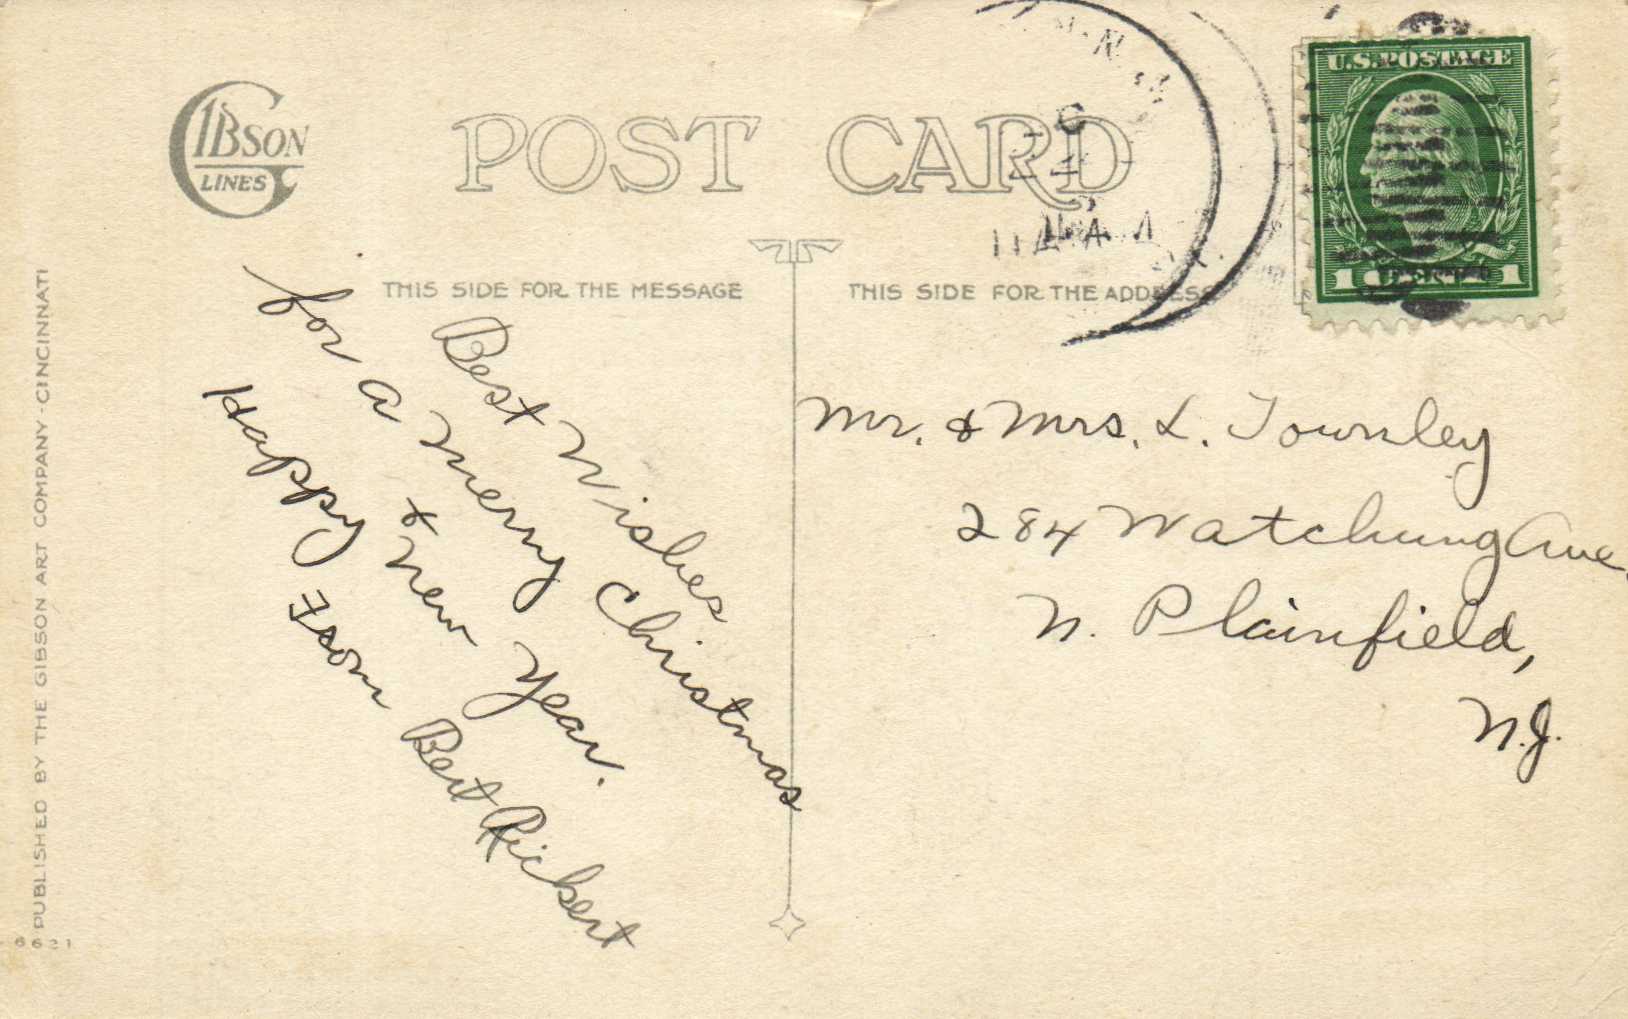 GIBSON
LINES
POST CARD
U.S.POSTAGE
1 CENT 1
THIS SIDE FOR THE MESSAGE
THIS SIDE FOR THE ADDRESS
Best Wishes
for a Merry Christmas
& 
Happy New Year.
From Bert Rickert
Mr. & Mrs. L. Townley
284 Watchung Ave.
N. Plainfield,
N.J.
PUBLISHED BY THE GIBSON ART COMPANY-CINCINNATI
6621